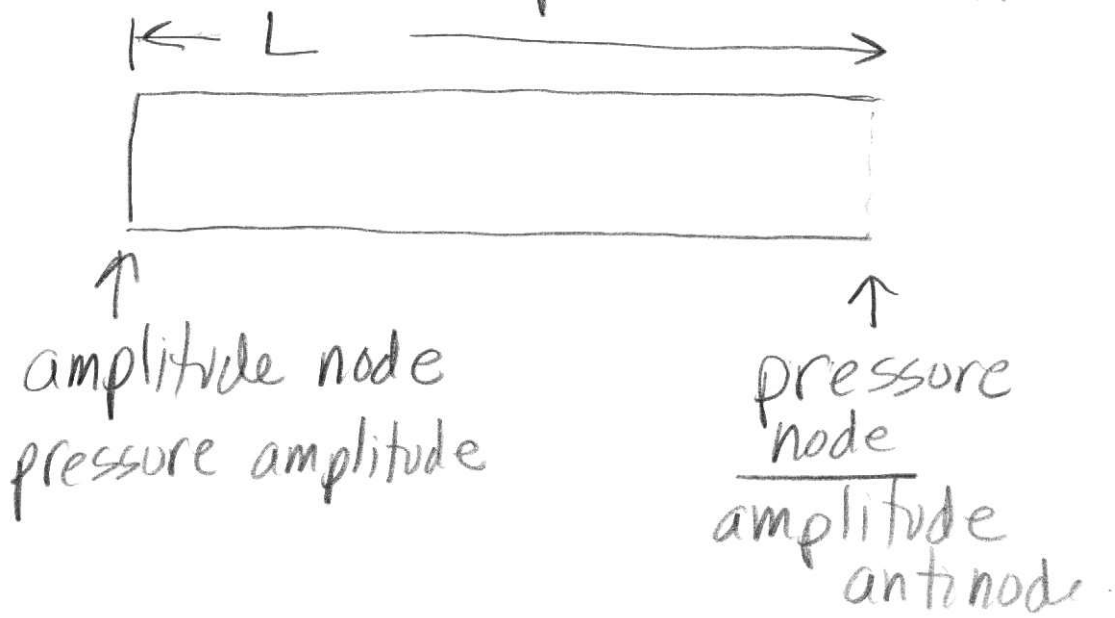 L
amplitude node
pressure amplitude
pressure
node
amplitude
antinode